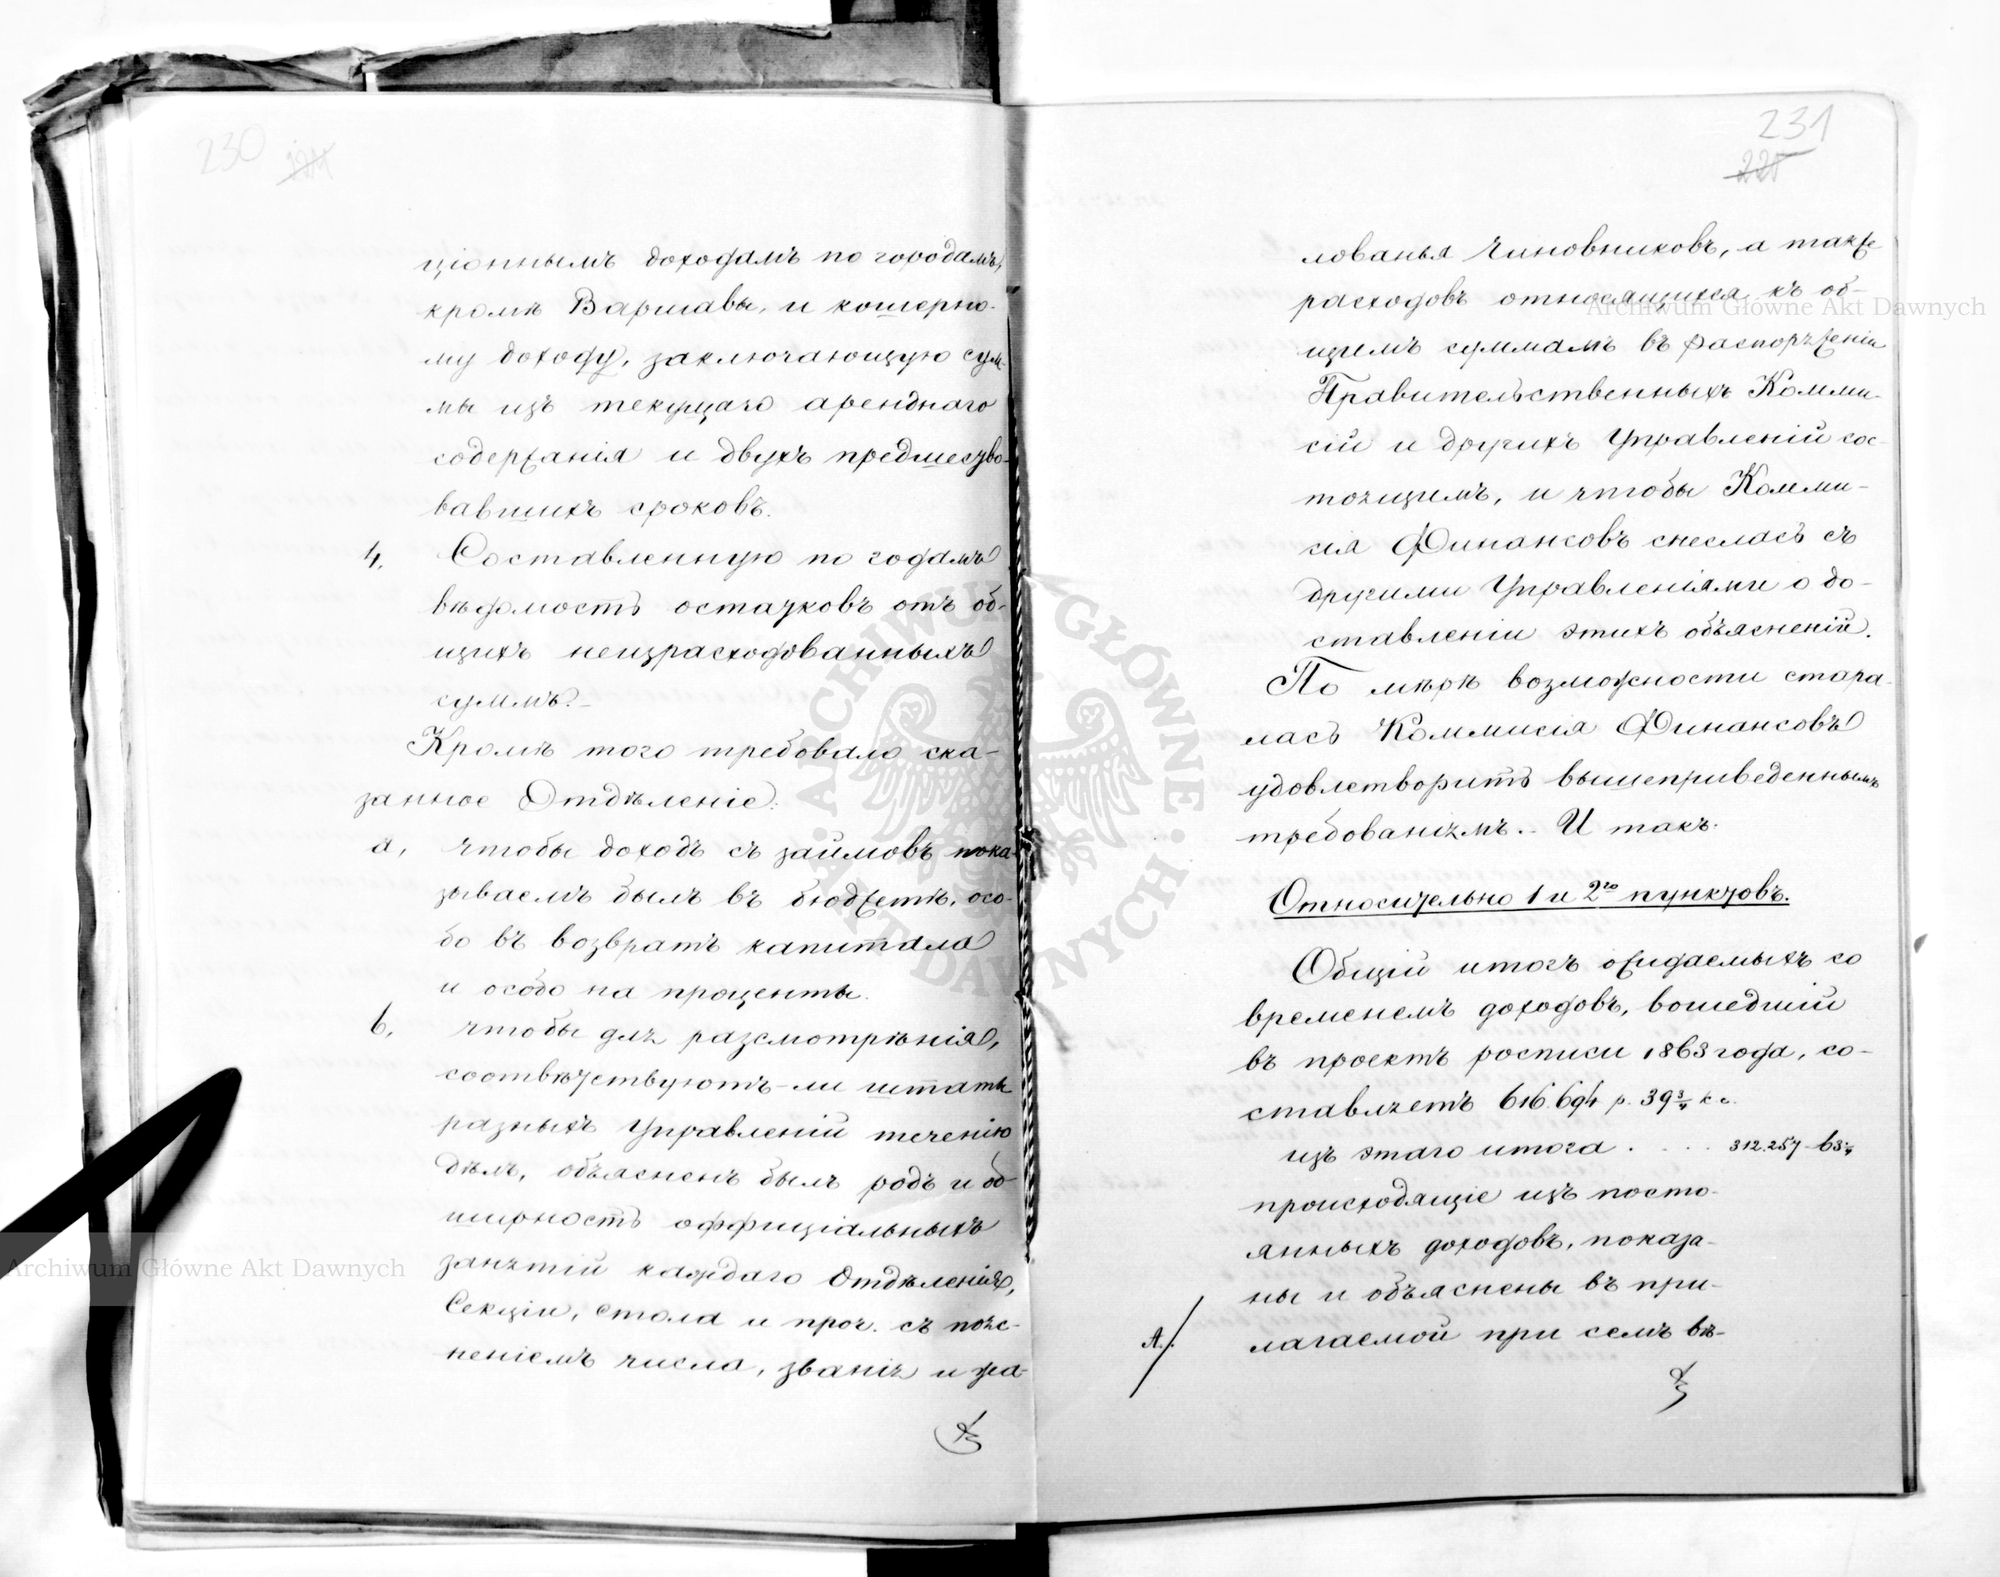 230
ціоннымъ доходамъ по городамъ,
кромѣ Варшавы, и кошерно-
му доходу, заключающую сум-
мы изъ текущаго арендного
содержанія и двухъ предшество-
вавшихъ сроковъ.
4. Составленную по годамъ
вѣдомость остатковъ отъ об-
щихъ неизрасходованныхъ
суммъ.–
Кромѣ того требовало ска-
занное Отдѣленіе:
а, чтобы доходъ съ займовъ пока-
зываемъ былъ въ бюджетѣ, осо-
бо въ возвратъ капитала
и особо на проценты.
b, чтобы для разсмотрѣнія,
соотвѣтствуютъ-ли штаты
разныхъ Управленій теченію
дѣлъ, объясненъ былъ родъ и об-
ширность оффиціальныхъ
занятій каждаго Отдѣленія,
Секціи, стола и проч. съ пояс-
неніемъ числа, званія и жа-
231
225
лованья чиновниковъ, а также
расходовъ относящихся къ об-
щимъ суммамъ въ распоряженіи
Правительственныхъ Комми-
сій и другихъ Управленій сос-
тоящимъ, и чтобы Комми-
сія Финансовъ снеслась съ
другими Управленіями о до-
ставленіи этихъ объясненій.
По мѣрѣ возможности стара-
лась Коммисія Финансовъ
удовлетворить вышеприведеннымъ
требованіямъ. – И такъ:
Относительно 1 и 2го пунктовъ.
Общій итогъ ожидаемыхъ со
временемъ доходовъ, вошедшій
въ проектъ росписи 1863 года, со-
ставляетъ 616.694 р. 39 3/4 к.
изъ этаго итога . . . . 312.257 63 1/4
происходящіе изъ посто-
янныхъ доходовъ, показа-
ны и объяснены въ при-
А./. лагаемой при семъ вѣ-
Archiwum Główne Akt Dawnych
Archiwum Główne Akt Dawnych
ARCHIWUM GŁÓWNE AKT DAWNYCH